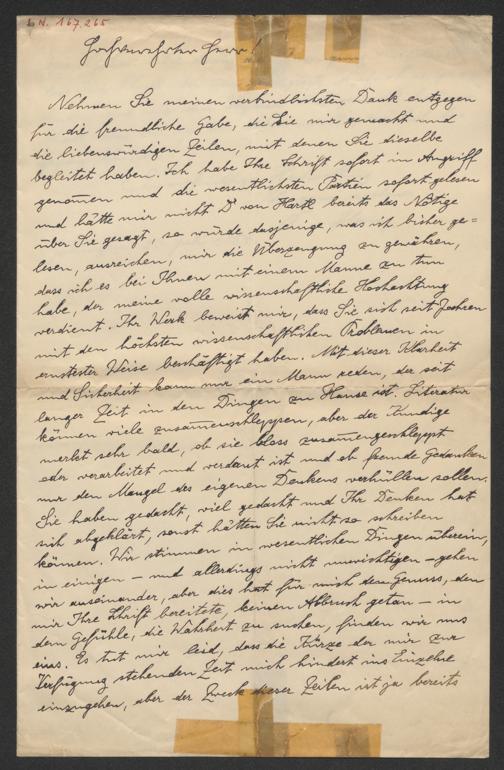 I. N. 167.265
Hochverehrter Herr!
Nehmen Sie meinen verbindlichsten Dank entgegen
für die freundliche Gabe, die Sie mir gemacht und
die liebenswürdigen Zeilen, mit denen Sie dieselbe
begleitet haben. Ich habe Ihre Schrift sofort in Angriff
genomen und die wesentlichsten Partien sofort gelesen
und hätte mir nicht Dr von Hartl bereits das Nötige
über Sie gesagt, so würde dasjenige, was ich bisher ge=
lesen, ausreichen, mir die Überzeugung zu gewähren,
dass ich es bei Ihnen mit einem Manne zu tun
habe, der meine volle wissenschaftliche Hochachtung
verdient. Ihr Werk beweist mir, dass Sie sich seit Jahren
mit den höchsten wissenschaftlichen Problemen in
ernstester Weise beschäftigt haben. Mit dieser Klarheit
und Sicherheit kann nur ein Mann reden, der seit
langer Zeit in den Dingen zu Hause ist. Literatur
können viele zusamenschleppen, aber der Kundige
merkt sehr bald, ob sie bloss zusamengeschleppt
oder verarbeitet und verdaut ist und ob fremde Gedanken
nur den Mangel des eigenen Denkens verhüllen sollen.
Sie haben gedacht, viel gedacht und Ihr Denken hat
sich abgeklärt, sonst hätten Sie nicht so schreiben
können. Wir stimmen in wesentlichen Dingen überein,
in einigen – und allerdings nicht unwichtigen – gehen
wir auseinander, aber dies hat für mich dem Genuss, den
mir Ihre Schrift bereitete, keinen Abbruch getan – in
dem Gefühle, die Wahrheit zu suchen, finden wir uns
eins. Es tut mir leid, dass die Kürze der mir zur
Verfügung stehenden Zeit mich hindert ins Einzelne
einzugehen, aber der Zweck dieser Zeilen ist ja bereits